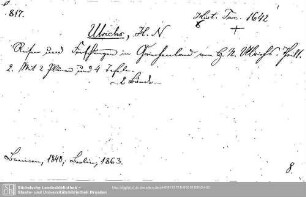 817.
Hist. Turc. 1642
8
Ulrichs, H. N
Reisen und Forschungen in Griechenland von H. N. Ulrichs. Theil
2. Mit 2 Plänen und 4 Tafeln.
2 Bände.
Bremen, 1840, Berlin, 1863.
8.
Sächsische Landesbibliothek -
Staats- und Universitätsbibliothek Dresden